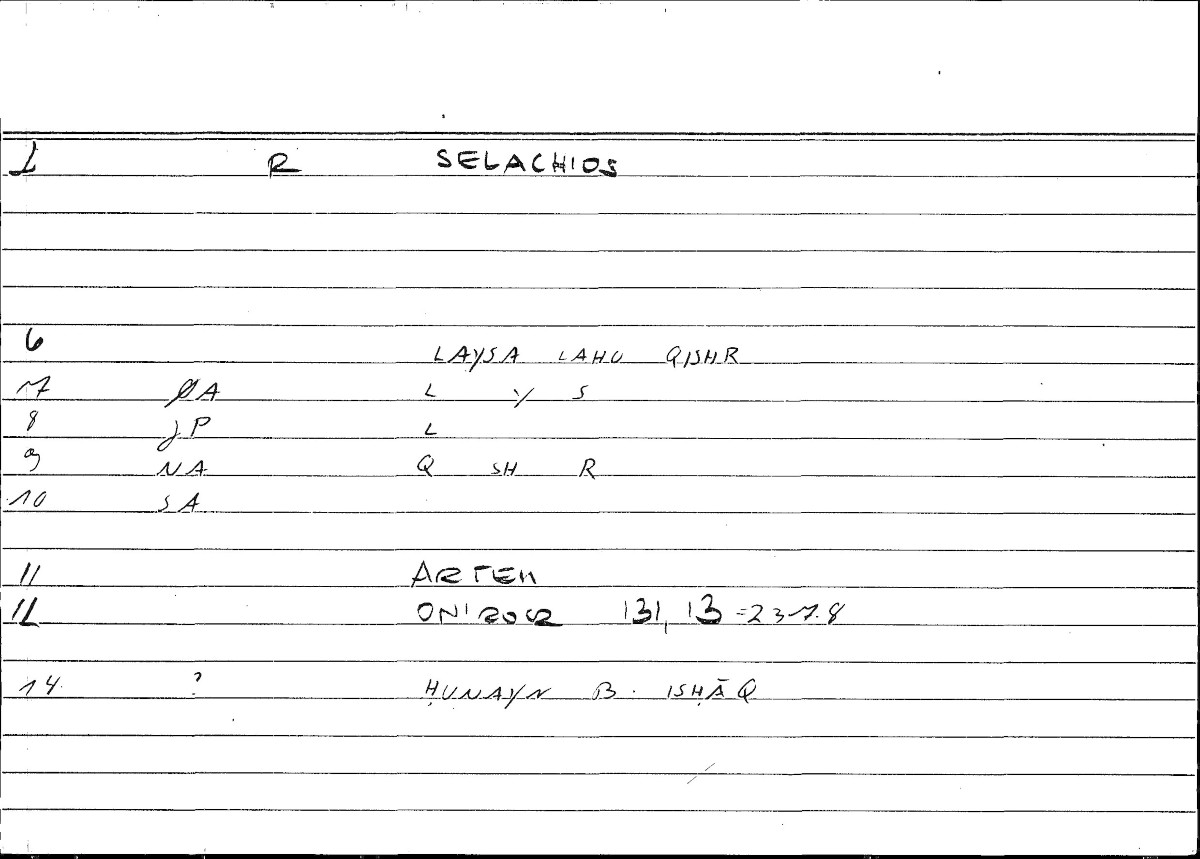 1 R SELACHIOS
6 LAYSA LAHU QISHR
7 ØA L Y S
8 JP L
9 NA Q SH R
10 SA
11 ARTEM
12 ONIROCR 131, 13 = 237.8
14 ? ḤUNAYN B. ISḤĀQ